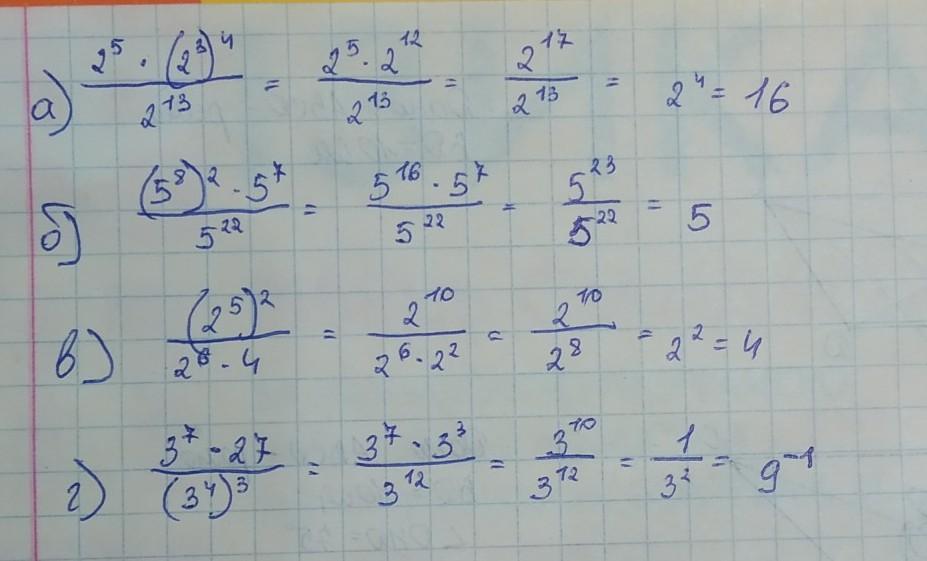 а) (2^5 · (2^3)^4)/(2^13) = (2^5 · 2^12)/(2^13) = (2^17)/(2^13) = 2^4 = 16
б) ((5^8)^2 · 5^7)/(5^22) = (5^16 · 5^7)/(5^22) = (5^23)/(5^22) = 5
в) ((2^5)^2)/(2^6 · 4) = (2^10)/(2^6 · 2^2) = (2^10)/(2^8) = 2^2 = 4
г) (3^7 · 27)/((3^4)^3) = (3^7 · 3^3)/(3^12) = (3^10)/(3^12) = 1/(3^2) = 9^-1